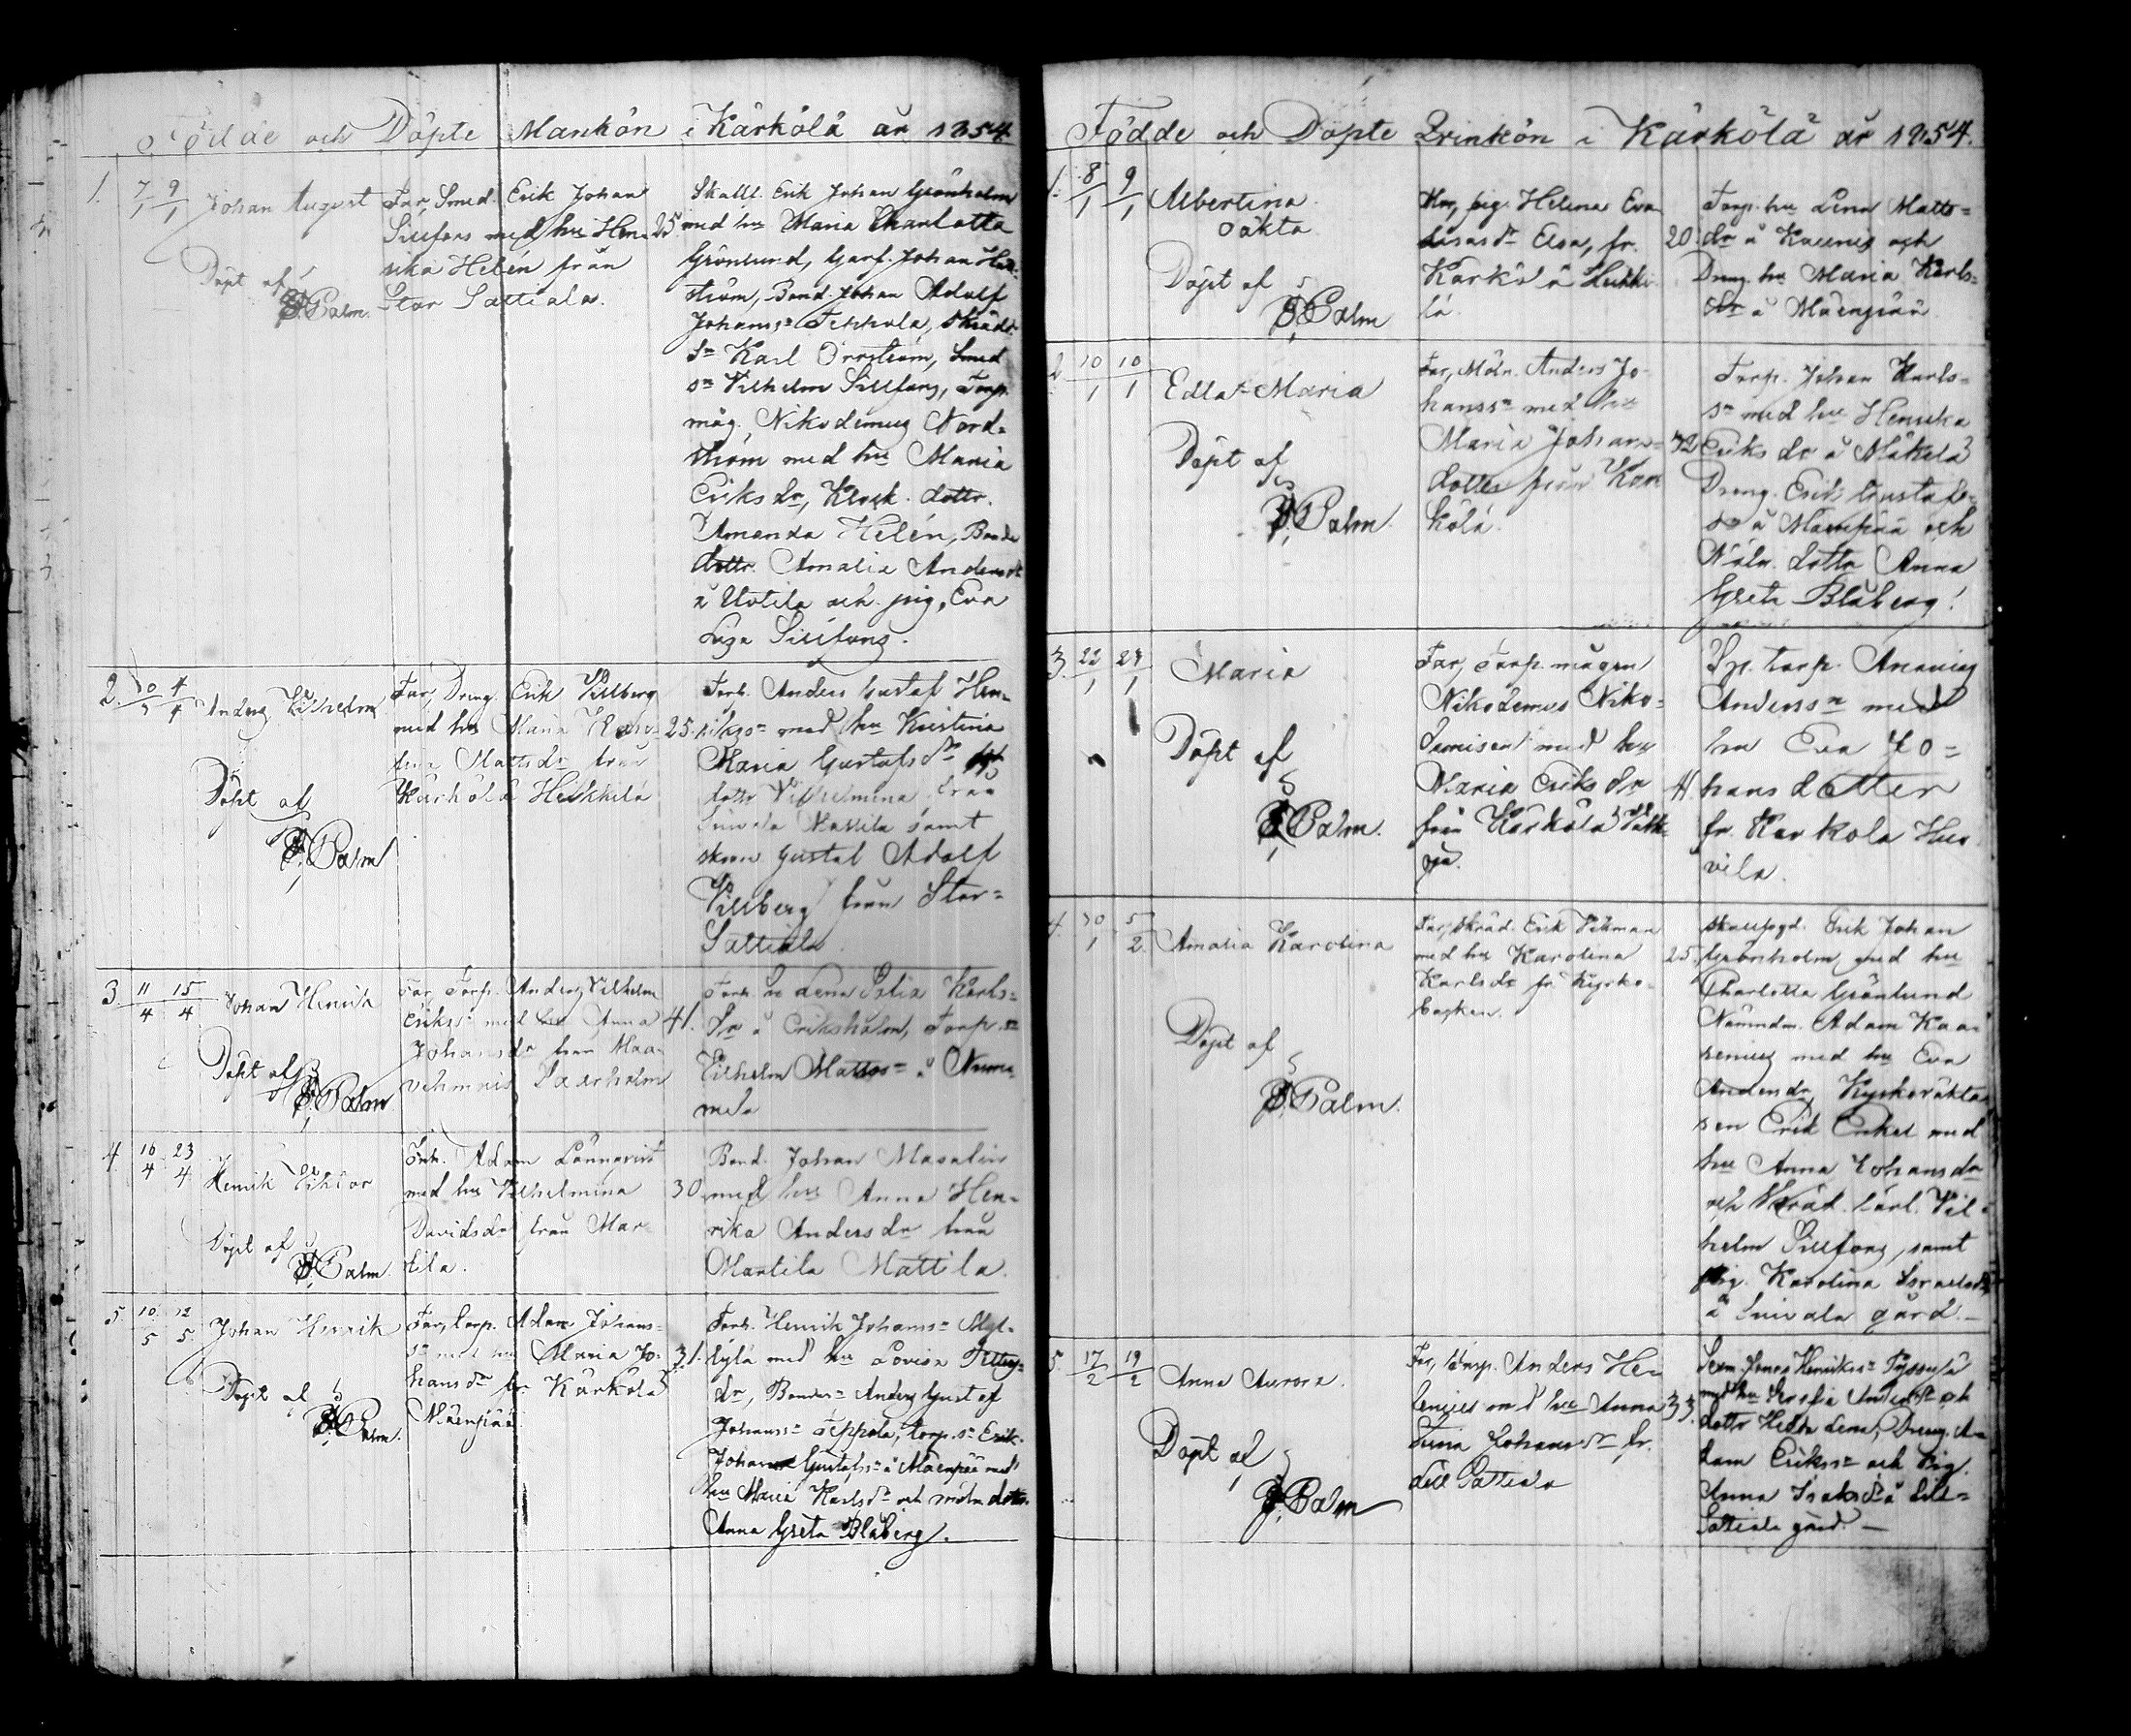 Födde och Döpte Mankön i Kärkölä år 1854.
1. 7/1 9/1 Johan August
Döpt af
Palm.
Far, Smed. Erik Johan
Sillfors med hu Hen-
rika Helén från
Stor Sattiala.
25
Skallf. Erik Johan Grönholm
med hu Maria Charlotta
Grönlund, Garf. Johan
ström, Bond. Johan Adolf
Johanss n Teppola,
sn Karl Örnström, Smed
sn Vilhelm Sillfors, Torp.
måg. Nikodemus Nord=
ström med hu Maria
Eriks dr, Klock. dottr.
Amanda Helén, Bonde
dottr. Amalia Anders dr
å Uotila och pig. Eva
Lisa Sillfors.
2. 4/4 Anders Vilhelm
Döpt af
Palm
Far, Dreng. Erik Villberg
med hu Maria
Mattsdr från
Kärkölä Heikkilä
25.
Torp. Anders Gustaf Hen-
rikss n med hu Kristina
Maria Gustafs dr
dottr Vilhelmina från
Mattila samt
Gustaf Adolf
Villberg från Stor=
Sattiala.
3. 11/4 15/4 Johan Henrik
Döpt af
Palm
Far, Torp. Anders Vilhelm
Erikss n med hu Anna
Johans dr från Maa-
41.
Lena Karls=
dr å Eriksholm, Torp. sn
Vilhelm Matss n å Numme-
mela
4. 16/4 23/4 Henrik Viktor
Döpt af
Palm
Adam Lönnqvist
med hu Vilhelmina
Davidsdr från Mar
tila.
30
Bond. Johan Masalin
med hu Anna Hen-
rika Anders dr från
Martila Mattila.
5. 10/5 12/5 Johan Henrik
Döpt af
Palm.
Far, Torp. Adam Johans-
sn med hu Maria Jo-
hans dr fr. Kärkölä
Mäenpää
31.
Henrik Johanss n Myl-
lylä med hu Lovisa
dr, Bondes n Anders Gustaf
Johanss n Teppola, torp. sn Erik
Johan Gustafs n å Mäenpää med
hu Maria Karls dr och möln. dottr.
Anna Greta Blåberg.
Födde och Döpte Qvinkön i Kärkölä år 1854.
1. 8/1 9/1 Albertina
oäkta
Döpt af
Palm
Mor, pig. Helena Eva
fr.
Kärkölä Heikki
lä.
20.
Torp. hu Lena Matts=
dr å och
Dreng. hu Maria Karls=
dr å Mäenpää
2 10/1 10/1 Edla Maria
Döpt af
Palm.
Far, Möln. Anders Jo-
hanss n med hu
Maria Johans=
dotter från Kär
kölä.
32
Torp. Johan Karls=
sn med hu Henrika
Eriks dr å Mäkelä
Dreng. Erik Gustafs-
sn å Mäenpää och
Möln. dottr Anna
Greta Blåberg!
3. 22/1 24/1 Maria
Döpt af
Palm.
Far, Torp. mågen
Nikodemus Niko=
med hu
Maria Eriks dr
från Kärkölä
41
torp. Ananias
Anderss n med
hu Eva Jo=
hans dotter
fr. Kärkölä Huo
vila.
4. 30/1 5/2 Amalia Karolina
Döpt af
Palm.
Far, skräd. Erik Vikman
med hu Karolina
Karlsdr fr. Kyrko-
backen.
25.
Erik Johan
Grönholm med hu
Charlotta Grönlund
Nämndm. Adam Kaa-
senius med hu Eva
Andersdr, Kyrkovakta
ren Erik Enkel med
hu Anna Johansdr
och Skräd. lärl. Vil-
helm Sillfors, samt
pig. Karolina Israelsdr
å gård.—
5. 17/2 19/2 Anna Aurora.
Döpt af
Palm
Far, Torp. Anders He-
lenius med hu Anna
Stina Johans dr fr.
Lill Sattiala
33
Jonas Henrikss n
med hu och
dottr Hedda Lena, Dreng. A-
dam Erikss n och Pig.
Anna Isaksdr å Lill=
Sattiala gård.—